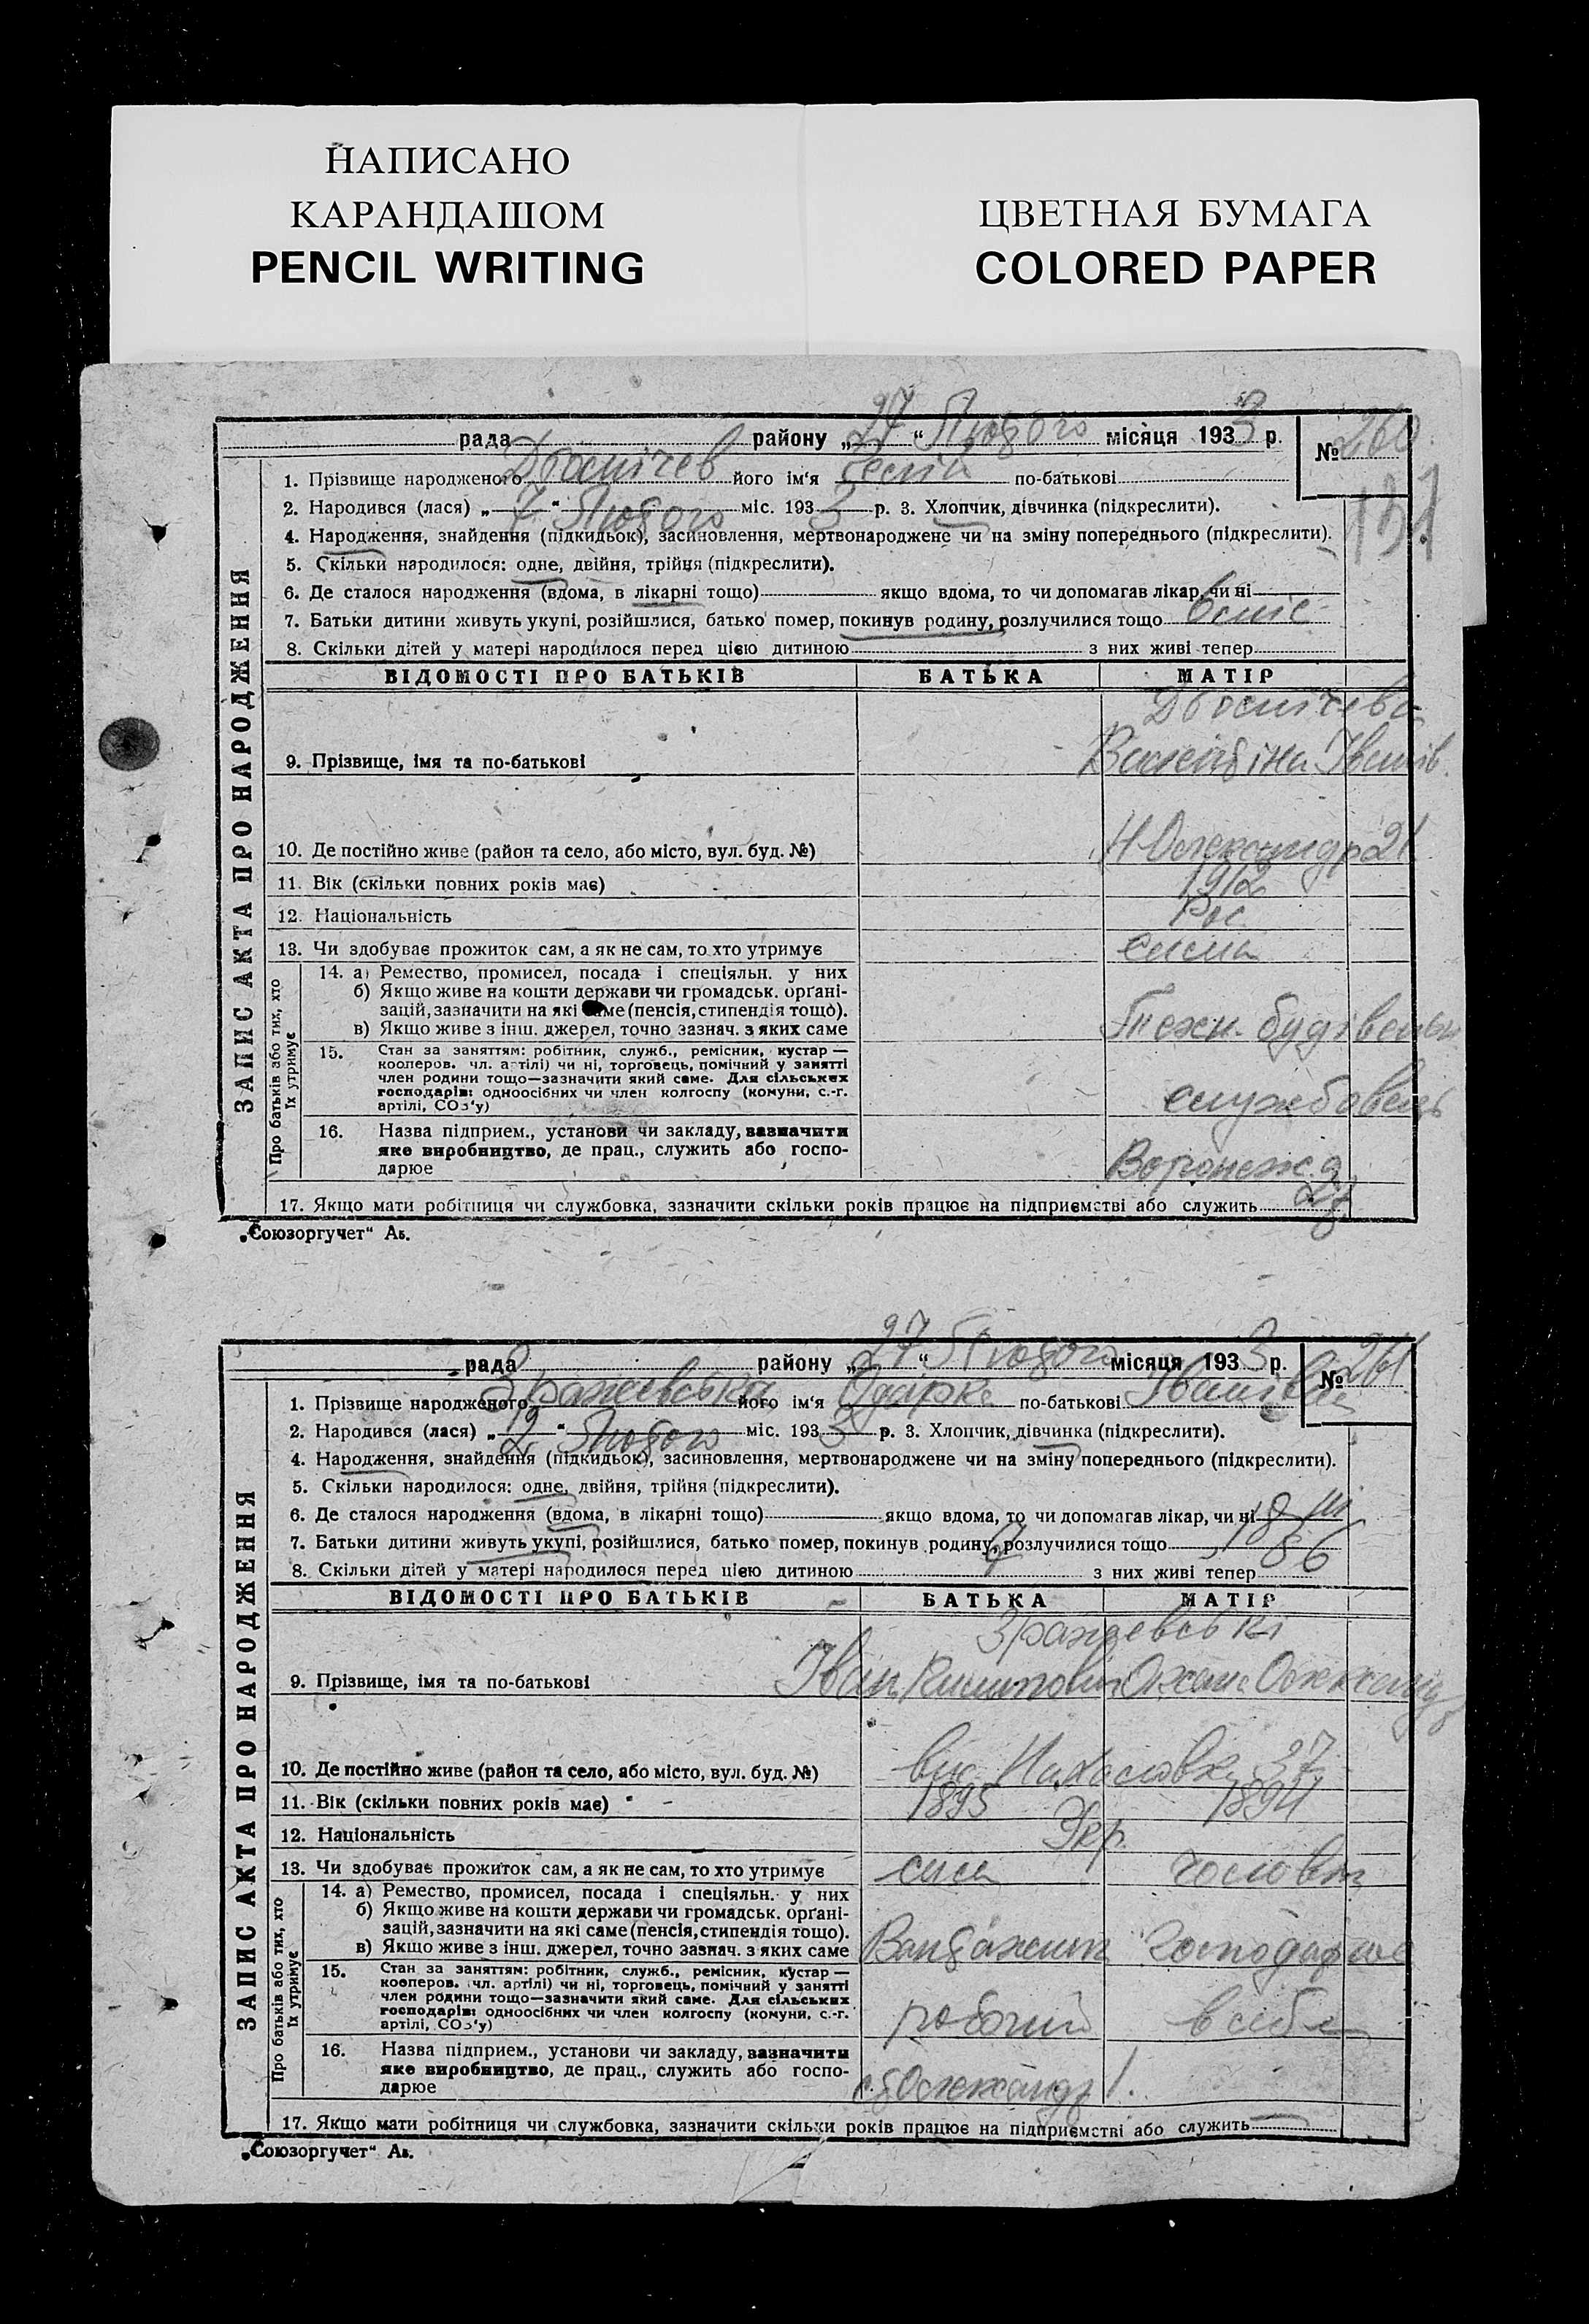 НАПИСАНО
КАРАНДАШОМ
PENCIL WRITING
ЦВЕТНАЯ БУМАГА
COLORED PAPER
рада району „27“ Лютого місяця 1933 р. № 260
1. Прізвище народженого його ім‘я по-батькові
131
2. Народився (лася) „7“ Лютого міс. 1933 р. 3. Хлопчик, дівчинка (підкреслити).
4. Народження, знайдення (підкидьок), засиновлення, мертвонароджене чи на зміну попереднього (підкреслити).
5. Скільки народилося: одне, двійня, трійця (підкреслити).
6. Де сталося народження (вдома, в лікарні тощо) якщо вдома, то чи допомагав лікар, чи ні
7. Батьки дитини живуть укупі, розійшлися, батько помер, покинув родину, розлучилися тощо
8. Скільки дітей у матері народилося перед цією дитиною з них живі тепер
ЗАПИС АКТА ПРО НАРОДЖЕННЯ
ВІДОМОСТІ ПРО БАТЬКІВ БАТЬКА МАТІР
9. Прізвище, імя та по-батькові Валентіна Іванів.
10. Де постійно живе (район та село, або місто, вул. буд. №) Н Олександр 21
11. Вік (скільки повних років має) 1912
12. Національність Рос.
13. Чи здобуває прожиток сам, а як не сам, то хто утримує сама
Про батьків або тих, хто їх утримує
14. а) Ремество, промисел, посада і спеціяльн. у них
б) Якщо живе на кошти держави чи громадськ. орґані-
зацій, зазначити на які саме (пенсія, стипендія тощо).
в) Якщо живе з інш. джерел, точно зазнач. з яких саме Техн. будівельн
15. Стан за заняттям: робітник, служб., ремісник, кустар —
кооперов. чл. артілі) чи ні, торговець, помічний у занятті
член родини тощо—зазначити який саме. Для сільських
господарів: одноосібних чи член колгоспу (комуни, с.-г.
артілі, СОЗ‘у) службовець
16. Назва підприєм., установи чи закладу, зазначити
яке виробництво, де прац., служить або госпо-
дарюе
17. Якщо мати робітниця чи службовка, зазначити скільки років працює на підприємстві або служить
„Союзоргучет“ Ав.
рада району „27“ Лютого місяця 1933 р. № 261
1. Прізвище народженого його ім‘я Одарка по-батькові Іванівна
2. Народився (лася) „2“ Лютого міс. 1933 р. 3. Хлопчик, дівчинка (підкреслити).
4. Народження, знайдення (підкидьок), засиновлення, мертвонароджене чи на зміну попереднього (підкреслити).
5. Скільки народилося: одне, двійня, трійня (підкреслити).
6. Де сталося народження (вдома, в лікарні тощо) якщо вдома, то чи допомагав лікар, чи ні
7. Батьки дитини живуть укупі, розійшлися, батько помер, покинув родину, розлучилися тощо
8. Скільки дітей у матері народилося перед цією дитиною 7 з них живі тепер 6
ЗАПИС АКТА ПРО НАРОДЖЕННЯ
ВІДОМОСТІ ПРО БАТЬКІВ БАТЬКА МАТІР
9. Прізвище, імя та по-батькові Іван
10. Де постійно живе (район та село, або місто, вул. буд. №) 37
11. Вік (скільки повних років має) 1895 1894
12. Національність Укр.
13. Чи здобуває прожиток сам, а як не сам, то хто утримує сам чоловік
Про батьків або тих, хто їх утримує
14. а) Ремество, промисел, посада і спеціяльн. у них
б) Якщо живе на кошти держави чи громадськ. орґані-
зацій, зазначити на які саме (пенсія, стипендія тощо).
в) Якщо живе з інш. джерел, точно зазнач. з яких саме Вантажник господарює
15. Стан за заняттям: робітник, служб., ремісник, кустар —
кооперов. чл. артілі) чи ні, торговець, помічний у занятті
член родини тощо—зазначити який саме. Для сільських
господарів: одноосібних чи член колгоспу (комуни, с.-г.
артілі, СОЗ‘у) робочий в себе
16. Назва підприєм., установи чи закладу, зазначити
яке виробництво, де прац., служить або госпо-
дарюе
17. Якщо мати робітниця чи службовка, зазначити скільки років працює на підприємстві або служить
„Союзоргучет“ Ав.